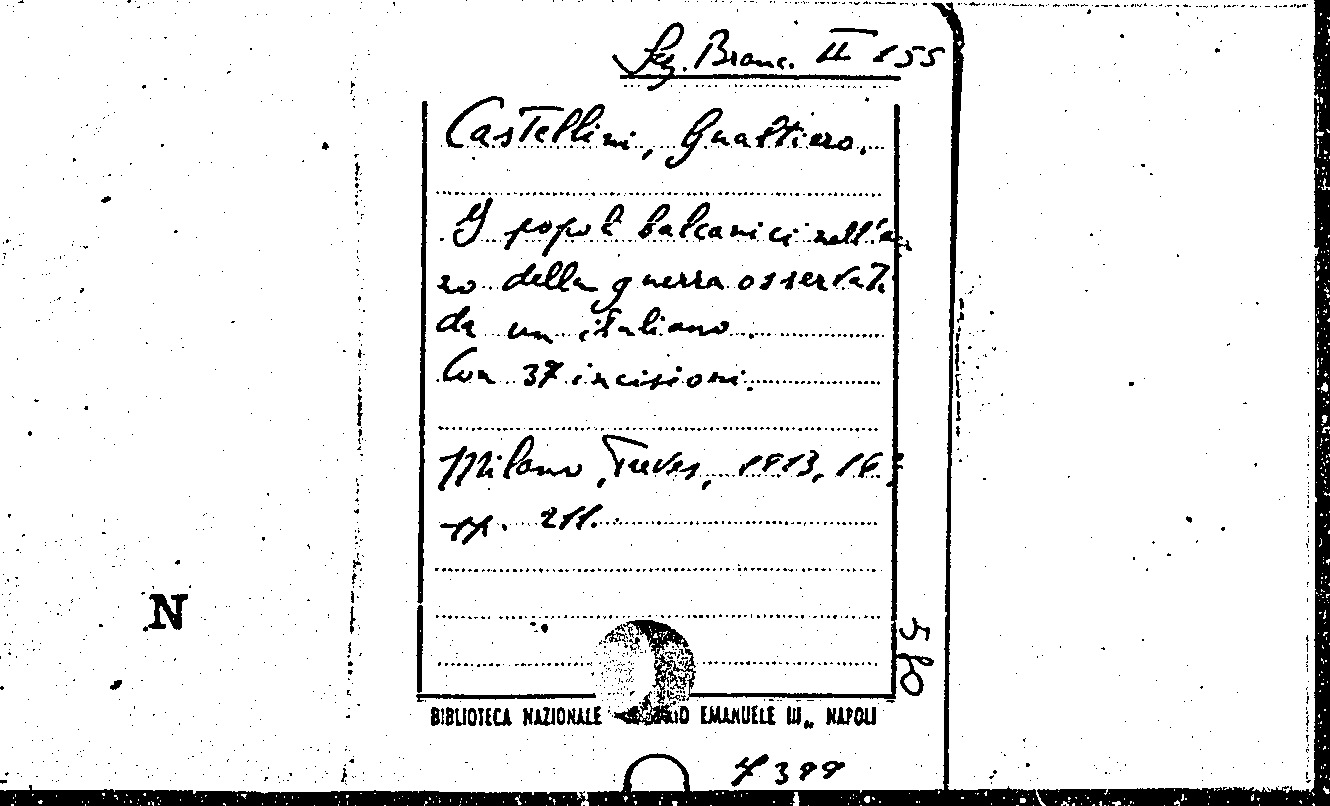 Sez. Branc. II E 55
Castellini, Gualtiero.
I popoli balcanici nell'an
no della guerra osservati
da un italiano.
Con 37 incisioni.
Milano, Treves, 1913, 16°,
pp. 211.
N
580
BIBLIOTECA NAZIONALE EMANUELE III„ NAPOLI
7399